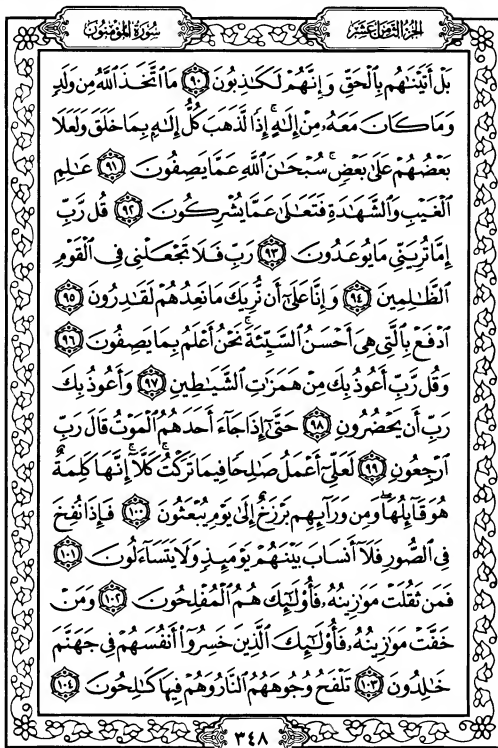 سُورَةُ المُؤْمِنُونَ الجُزْءُ الثَّامِنَ عَشَرَ
بَلْ أَتَيْنَٰهُم بِٱلْحَقِّ وَإِنَّهُمْ لَكَٰذِبُونَ ٩٠ مَا ٱتَّخَذَ ٱللَّهُ مِن وَلَدٍ
وَمَا كَانَ مَعَهُۥ مِنْ إِلَٰهٍ ۚ إِذًا لَّذَهَبَ كُلُّ إِلَٰهٍۭ بِمَا خَلَقَ وَلَعَلَا
بَعْضُهُمْ عَلَىٰ بَعْضٍ ۚ سُبْحَٰنَ ٱللَّهِ عَمَّا يَصِفُونَ ٩١ عَٰلِمِ
ٱلْغَيْبِ وَٱلشَّهَٰدَةِ فَتَعَٰلَىٰ عَمَّا يُشْرِكُونَ ٩٢ قُل رَّبِّ
إِمَّا تُرِيَنِّى مَا يُوعَدُونَ ٩٣ رَبِّ فَلَا تَجْعَلْنِى فِى ٱلْقَوْمِ
ٱلظَّٰلِمِينَ ٩٤ وَإِنَّا عَلَىٰٓ أَن نُّرِيَكَ مَا نَعِدُهُمْ لَقَٰدِرُونَ ٩٥
ٱدْفَعْ بِٱلَّتِى هِىَ أَحْسَنُ ٱلسَّيِّئَةَ ۚ نَحْنُ أَعْلَمُ بِمَا يَصِفُونَ ٩٦
وَقُل رَّبِّ أَعُوذُ بِكَ مِنْ هَمَزَٰتِ ٱلشَّيَٰطِينِ ٩٧ وَأَعُوذُ بِكَ
رَبِّ أَن يَحْضُرُونِ ٩٨ حَتَّىٰٓ إِذَا جَآءَ أَحَدَهُمُ ٱلْمَوْتُ قَالَ رَبِّ
ٱرْجِعُونِ ٩٩ لَعَلِّىٓ أَعْمَلُ صَٰلِحًا فِيمَا تَرَكْتُ ۚ كَلَّآ ۚ إِنَّهَا كَلِمَةٌ
هُوَ قَآئِلُهَا ۖ وَمِن وَرَآئِهِم بَرْزَخٌ إِلَىٰ يَوْمِ يُبْعَثُونَ ١٠٠ فَإِذَا نُفِخَ
فِى ٱلصُّورِ فَلَآ أَنسَابَ بَيْنَهُمْ يَوْمَئِذٍ وَلَا يَتَسَآءَلُونَ ١٠١
فَمَن ثَقُلَتْ مَوَٰزِينُهُۥ فَأُو۟لَٰٓئِكَ هُمُ ٱلْمُفْلِحُونَ ١٠٢ وَمَنْ
خَفَّتْ مَوَٰزِينُهُۥ فَأُو۟لَٰٓئِكَ ٱلَّذِينَ خَسِرُوٓا۟ أَنفُسَهُمْ فِى جَهَنَّمَ
خَٰلِدُونَ ١٠٣ تَلْفَحُ وُجُوهَهُمُ ٱلنَّارُ وَهُمْ فِيهَا كَٰلِحُونَ ١٠٤
٣٤٨